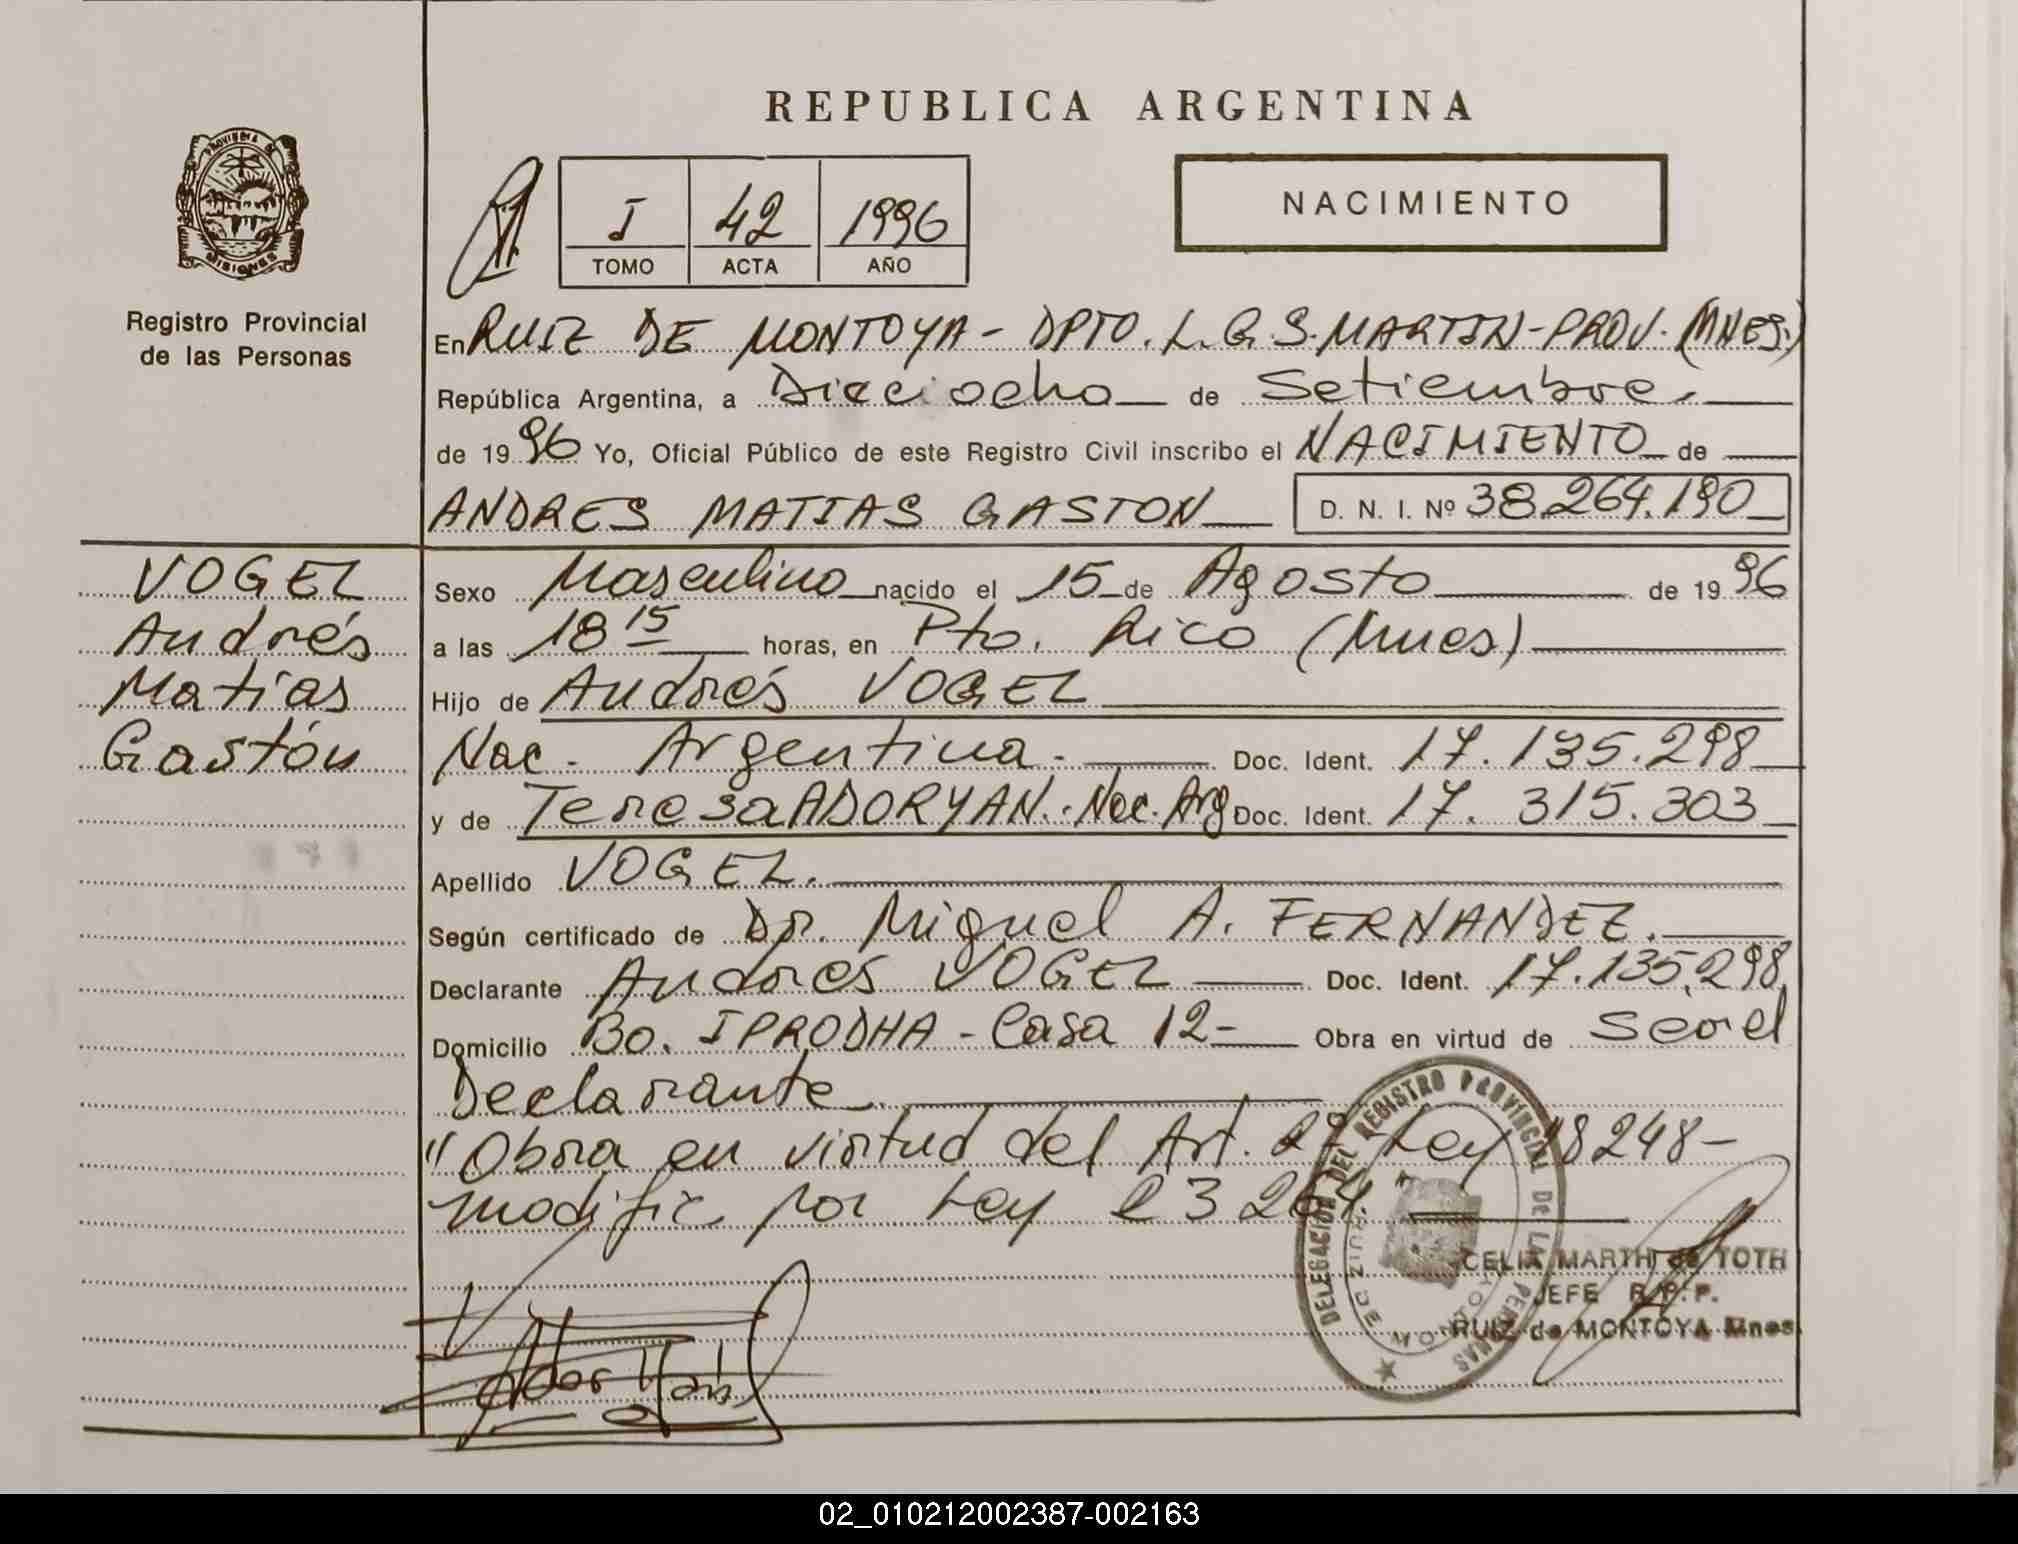 REPUBLICA ARGENTINA
PROVINCIA DE
MISIONES
Registro Provincial
de las Personas
I 42 1996
TOMO ACTA AÑO
NACIMIENTO
En RUIZ DE MONTOYA - DPTO. L. G. S. MARTIN - PROV. (MNES.)
República Argentina, a Dieciocho de Setiembre.
de 19 96 Yo, Oficial Público de este Registro Civil inscribo el NACIMIENTO de
ANDRES MATIAS GASTON D. N. I. Nº 38.264.190
VOGEL
Andrés
Matías
Gastón
Sexo Masculino nacido el 15 de Agosto de 19 96
a las 18 15 horas, en Pto. Rico (Mnes)
Hijo de Andrés VOGEL
Nac. Argentina. Doc. Ident. 17.135.298
y de Teresa ADORYAN. Nac. Arg Doc. Ident. 17.315.303
Apellido VOGEL.
Según certificado de Dr. Miguel A. FERNANDEZ.
Declarante Andrés VOGEL Doc. Ident. 17.135.298
Domicilio Bo. IPRODHA - Casa 12- Obra en virtud de ser el
Declarante.
"Obra en virtud del Art. 27 Ley 18248-
modific por Ley 23264.
DELEGACION DEL REGISTRO PROVINCIAL DE LAS PERSONAS
RUIZ DE MONTOYA
CELIA MARTH de TOTH
JEFE R.P.P.
RUIZ de MONTOYA Mnes
02_010212002387-002163